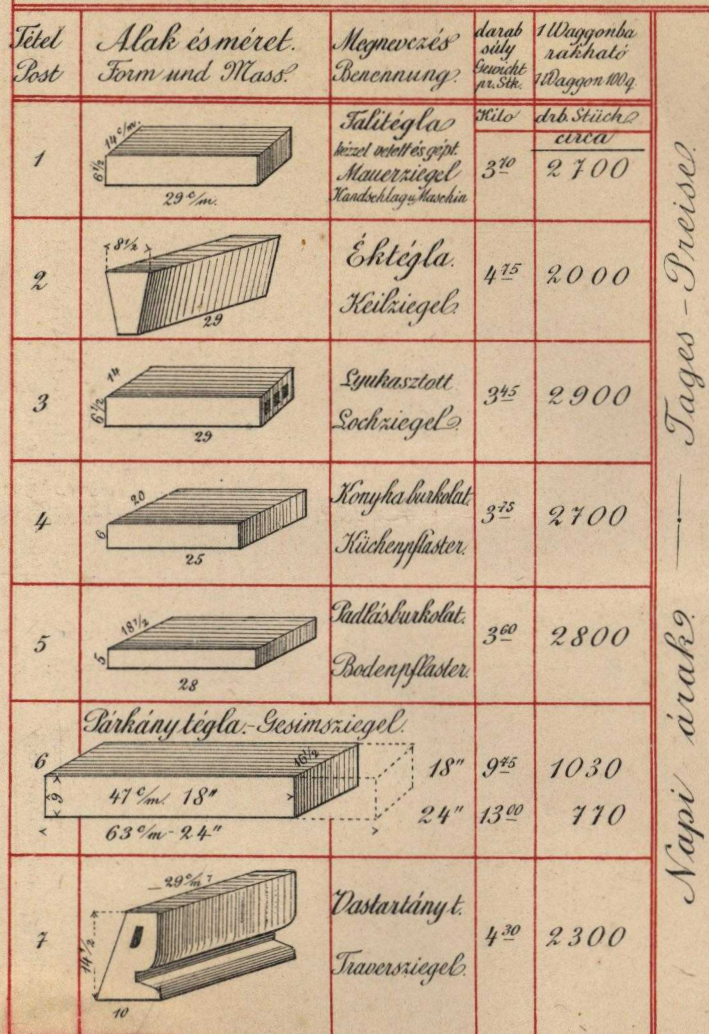 Tétel
Post
Alak és méret.
Form und Mass.
Megnevezés
Benennung.
darab
súly
Gewicht
pr. Stk.
1 Waggonba
rakható
1 Waggon 100 q
Kilo
drb. Stück
circa
1
14 c/m.
6 1/2
29 c/m.
Falitégla
kézzel vetett és gépt.
Mauerziegel
Handschlag u. Maschin
3 70
2700
2
8 1/2
29
Éktégla.
Keilziegel.
4 75
2000
3
14
6 1/2
29
Lyukasztott
Lochziegel.
3 45
2900
4
20
6
25
Konyhaburkolat.
Küchenpflaster.
3 75
2700
5
18 1/2
5
28
Padlásburkolat.
Bodenpflaster.
3 60
2800
Párkánytégla.-Gesimsziegel.
6
16 1/2
9
47 c/m. 18"
63 c/m - 24"
18" 9 75 1030
24" 13 00 770
7
29 c/m
14 1/2
10
Vastartány t.
Traversziegel.
4 30
2300
Napi árak. — Tages-Preise.